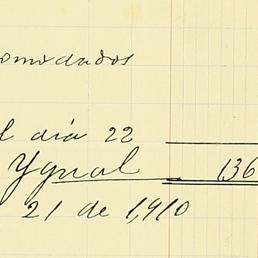 omodados
l día 22
Ygual 136
21 de 1,910